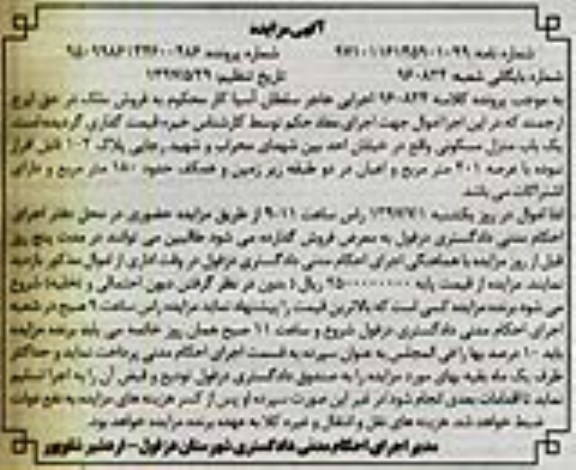 آگهی مزایده
شماره نامه: شماره پرونده:
شماره بایگانی شعبه: ۹۶۰۸۳۴ تاریخ تنظیم: ۱۳۹۷/۵/۲۹
به موجب پرونده کلاسه ۹۶۰۸۳۴ اجرایی هاجر سلطان آسیا کار محکوم به فروش ملک در حق ایرج
ارجمند که در این اجرا اموال جهت اجرای مفاد حکم توسط کارشناس خبره قیمت گذاری گردیده است.
یک باب منزل مسکونی واقع در خیابان احد بین شهدای محراب و شهید رجایی پلاک ۱۰۲ قابل افراز
نبوده با عرصه ۲۰۱ متر مربع و اعیان در دو طبقه زیر زمین و همکف حدود ۱۸۰ متر مربع و دارای
اشتراکات می باشد.
لذا اموال در روز یکشنبه ۱۳۹۷/۷/۱ راس ساعت ۱۱-۹ از طریق مزایده حضوری در محل دفتر اجرای
احکام مدنی دادگستری دزفول به معرض فروش گذارده می شود طالبین می توانند در مدت پنج روز
قبل از روز مزایده با هماهنگی اجرای احکام مدنی دادگستری دزفول در وقت اداری از اموال مذکور بازدید
نمایند. مزایده از قیمت پایه ریال (بدون در نظر گرفتن دیون احتمالی و تخلیه) شروع
می شود برنده مزایده کسی است که بالاترین قیمت را پیشنهاد نماید مزایده راس ساعت ۹ صبح در شعبه
اجرای احکام مدنی دادگستری دزفول شروع و ساعت ۱۱ صبح همان روز خاتمه می یابد برنده مزایده
باید ۱۰ درصد بها را فی المجلس به عنوان سپرده به قسمت اجرای احکام مدنی پرداخت نماید و حداکثر
ظرف یک ماه بقیه بهای مورد مزایده را به صندوق دادگستری دزفول تودیع و قبض آن را به اجرا تسلیم
نماید تا اقدامات بعدی انجام شود در غیر این صورت سپرده او پس از کسر هزینه های مزایده به نفع دولت
ضبط خواهد شد. هزینه های نقل و انتقال و غیره کلا به عهده برنده مزایده خواهد بود.
مدیر اجرای احکام مدنی دادگستری شهرستان دزفول - اردشیر